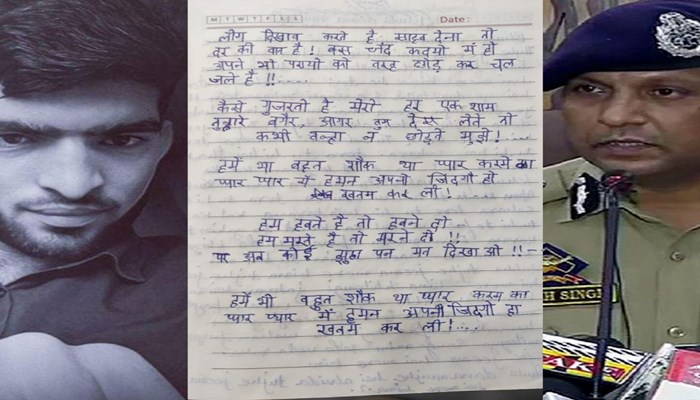 M T W T F S S Date:
लोग दिखाव करते है साहब देना तो
दूर की बात है! बस चंद कदमो मे ही
अपने भी परायो की तरह छोड़ कर चल
जाते है !!.....
कैसे गुजरती है मेरी हर एक शाम
तुम्हारे बगैर, अगर तुम देख लेते तो
कभी तन्हा न छोड़ते मुझे!....
हमें भी बहुत शौक था प्यार करने का
प्यार प्यार में हमन अपनी जिंदगी ही
खतम कर ली!....
हम डूबते है तो डूबने दो..
हम मरते है तो मरने दो !!
पर अब कोई झुठा पन मत दिखाओ !!-
हमें भी बहुत शौक था प्यार करन का
प्यार प्यार में हमन अपनी जिंदगी ही
खतम कर ली!....
H SINGH
TAKE